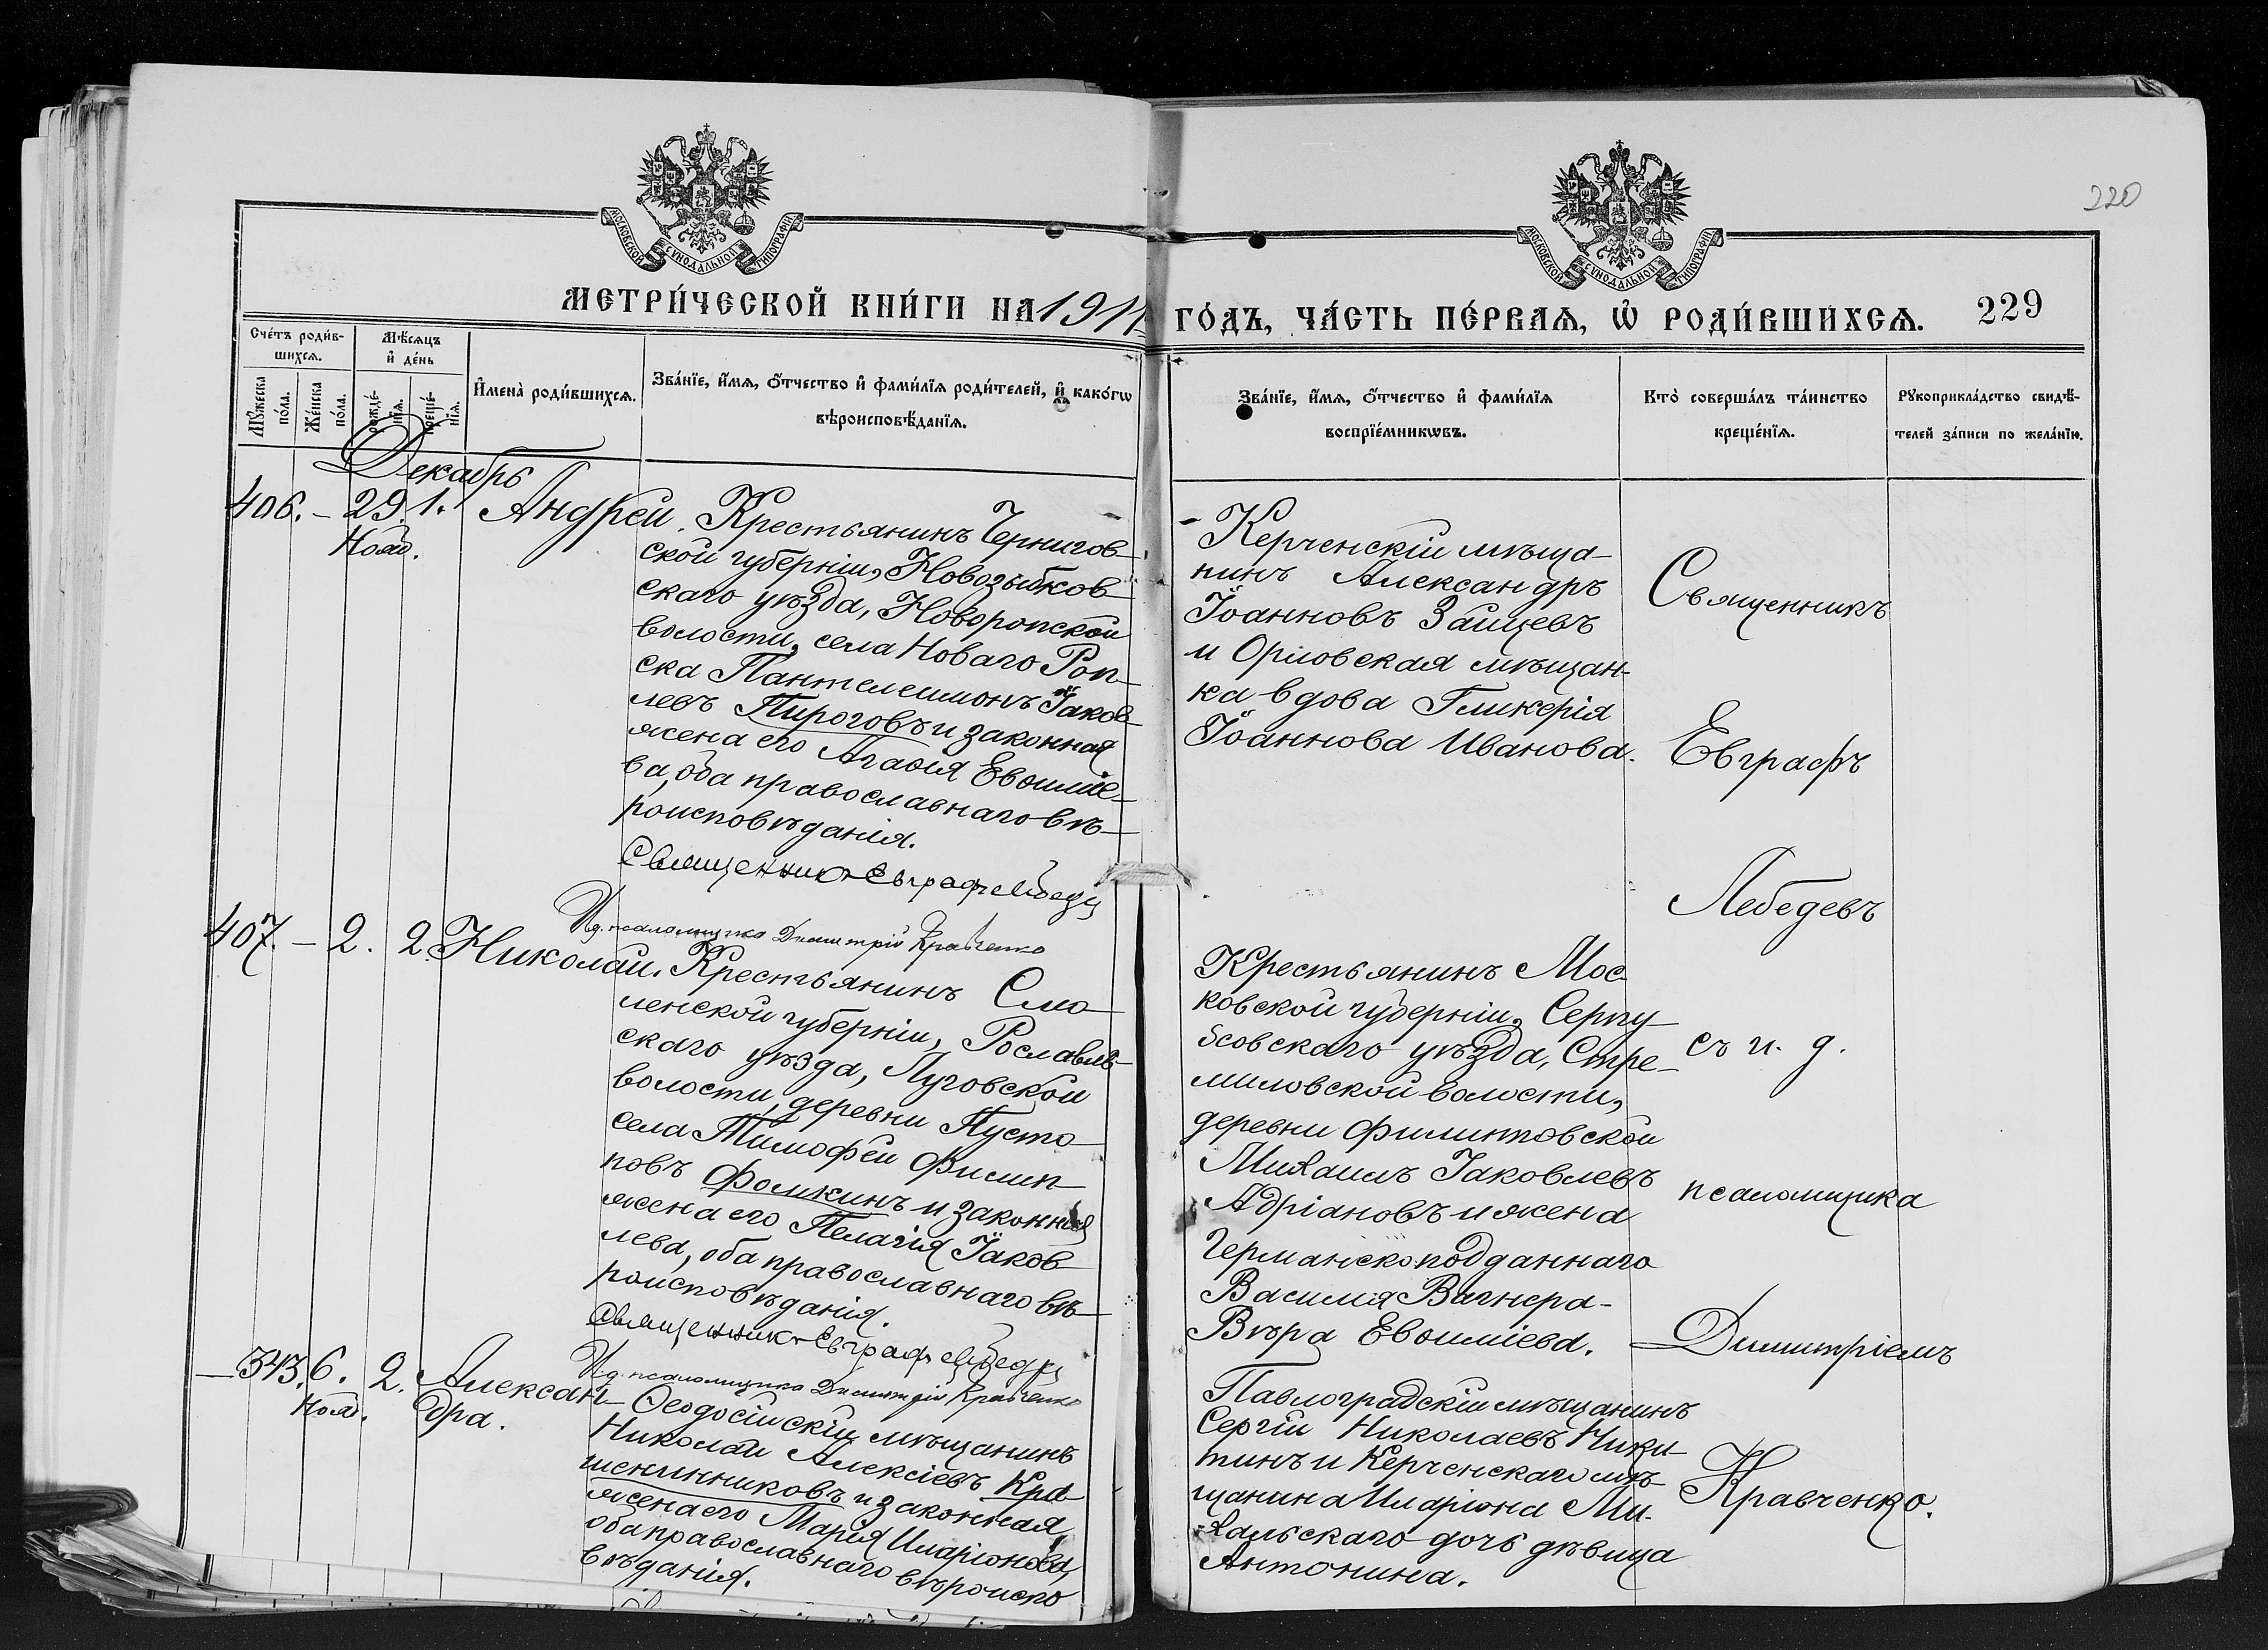 220
МОСКОВСКОЙ СУНОДАЛЬНОЙ ТИПОГРАФІИ
МОСКОВСКОЙ СУНОДАЛЬНОЙ ТИПОГРАФІИ
МЕТРИ́ЧЕСКОЙ КНИ́ГИ НА 1911
ГО́ДЪ, ЧА́СТЬ ПЕ́РВАѦ, Ѡ҆ РОДИ́ВШИХСѦ. 229
Сче́тъ роди́в-
шихсѧ.
Мꙋ́жеска
по́ла.
Же́нска
по́ла.
Мѣ́сѧцъ
и҆ де́нь
рожде́-
нїѧ.
креще́-
нїѧ.
И҆мена̀ роди́вшихсѧ.
Зва́нїе, и҆́мѧ, ѻ҆́тчество и҆ фами́лїѧ роди́телей, и҆ како́гѡ
вѣроисповѣ́данїѧ.
Зва́нїе, и҆́мѧ, ѻ҆́тчество и҆ фами́лїѧ
воспрїе́мникѡвъ.
Кто̀ соверша́лъ та́инство
креще́нїѧ.
Рꙋкоприкла́дство свидѣ́-
телей за́писи по жела́нїю.
Декабрь
406. – 29. 1. Андрей.
Нояб.
Крестьянинъ Чернигов-
ской губерніи, Новозыбков-
скаго уѣзда, Новоропской
волости, села Новаго Роп-
ска Пантелеимонъ Іаков-
левъ Пироговъ и законная
жена его Агаѳія Евѳиміе-
ва, оба православнаго вѣ-
роисповѣданія.
Священникъ Евграфъ Лебедевъ
И.д. псаломщика Димитрій Кравченко
Керченскій мѣща-
нинъ Александръ
Іоанновъ Зайцевъ
и Орловская мѣщан-
ка вдова Гликерія
Іоаннова Иванова.
Священникъ
Евграфъ
Лебедевъ
съ и. д.
псаломщика
Димитріемъ
Кравченко.
407. – 2. 2. Николай.
Крестьянинъ Смо-
ленской губерніи, Рославль-
скаго уѣзда, Луговской
волости, деревни Пусто-
села Тимофей Филип-
повъ Фомкинъ и законная
жена его Пелагія Іаков-
лева, оба православнаго вѣ-
роисповѣданія.
Священникъ Евграфъ Лебедевъ
И.д. псаломщика Димитрій Кравченко
Крестьянинъ Мос-
ковской губерніи, Серпу-
ховскаго уѣзда, Стре-
миловской волости,
деревни Филиповской
Михаилъ Іаковлевъ
Адріановъ и жена
Германскоподданнаго
Василія Вагнера-
Вѣра Евѳиміева.
– 343. 6. 2. Алексан-
Нояб. дра.
Ѳеодосійскій мѣщанинъ
Николай Алексіевъ Кра-
шенинниковъ и законная
жена его Марія Иларіонова,
оба православнаго вѣроиспо
вѣданія.
Павлоградскій мѣщанинъ
Сергій Николаевъ Ники-
тинъ и Керченскаго мѣ-
щанина Иларіона Ми-
хальскаго дочь дѣвица
Антонина.